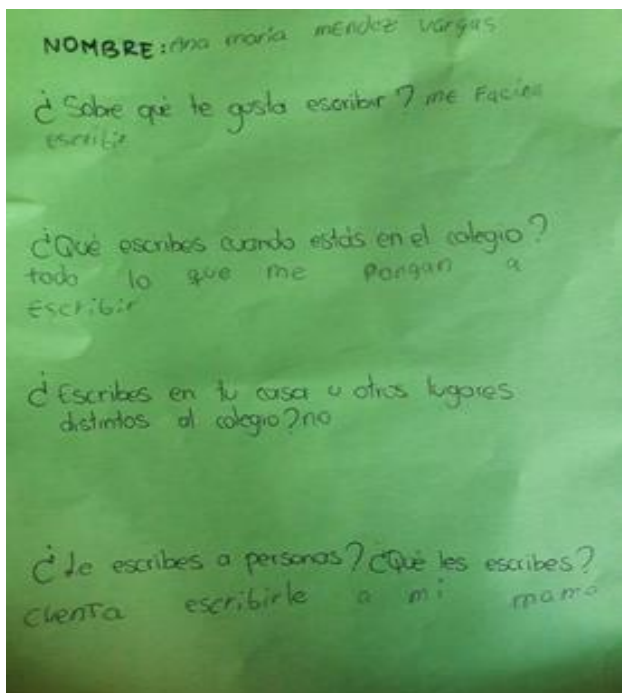 NOMBRE: Ana maria mendez vargas
¿Sobre qué te gusta escribir? me Facina
escribir
¿Qué escribes cuando estás en el colegio?
todo lo que me Pongan a
Escribir
¿Escribes en tu casa u otros lugares
distintos al colegio? no
¿Le escribes a personas? ¿Qué les escribes?
cuenTa escribirle a mi mama